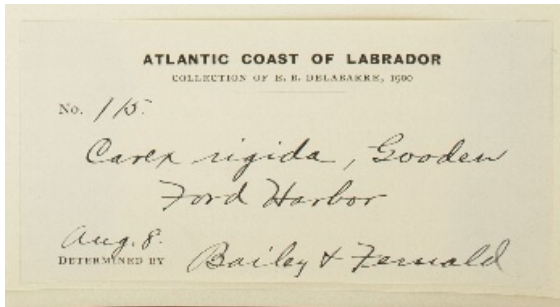 ATLANTIC COAST OF LABRADOR
COLLECTION OF E. B. DELABARRE, 1900
No. 115.
Carex rigida, Gooden
Ford Harbor
Aug. 8.
DETERMINED BY Bailey & Fernald